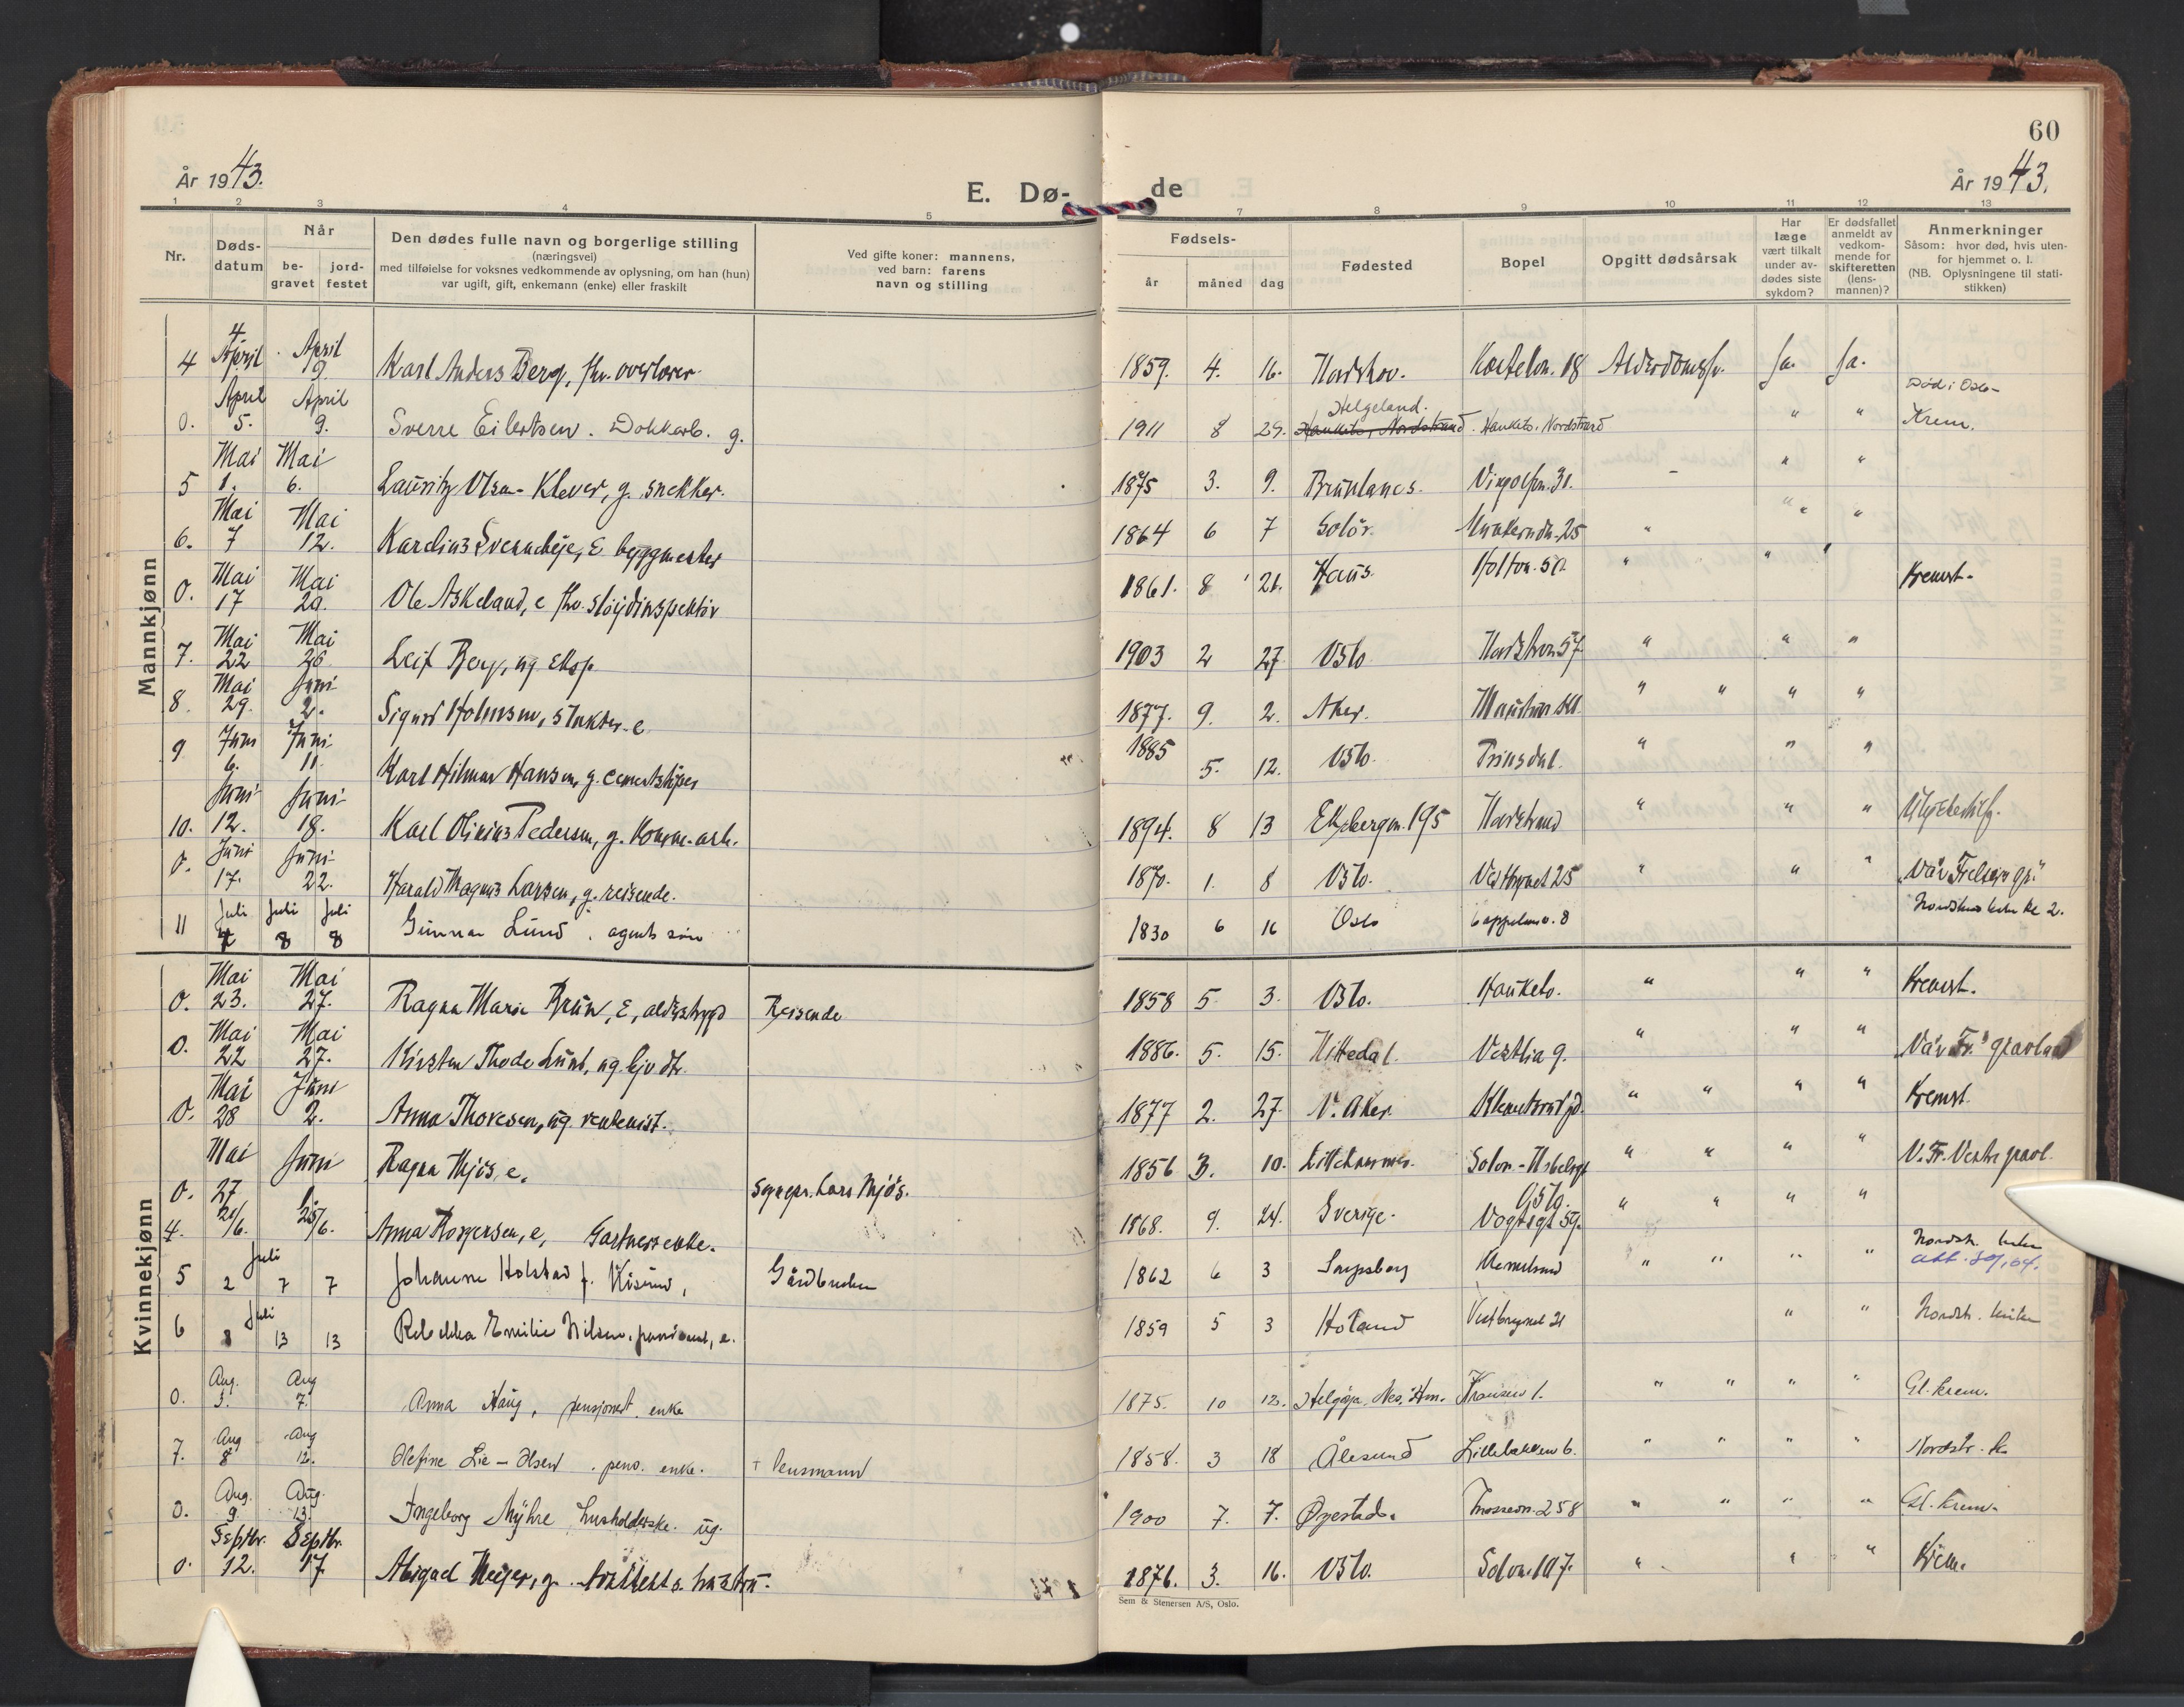 60
År 1943.
E. Dø-
de
År 1943.
1 2 3 4 5 7 8 9 10 11 12 13
Nr.
Døds-
datum
Når
be-
gravet
jord-
festet
Den dødes fulle navn og borgerlige stilling
(næringsvei)
med tilføielse for voksnes vedkommende av oplysning, om han (hun)
var ugift, gift, enkemann (enke) eller fraskilt
Ved gifte koner: mannens,
ved barn: farens
navn og stilling
Fødsels-
år måned dag
Fødested
Bopel
Opgitt dødsårsak
Har
læge
vært tilkalt
under av-
dødes siste
sykdom?
Er dødsfallet
anmeldt av
vedkom-
mende for
skifteretten
(lens-
mannen)?
Anmerkninger
Såsom: hvor død, hvis uten-
for hjemmet o. l.
(NB. Oplysningene til stati-
stikken)
Mannkjønn
4 4 April April 9. Karl Anders Berg, fhv. 1859. 4. 16. Ja. Ja.
0. April 5. April 9. Sverre Eilertsen. Dokkarb. g. 1911 8 29. Helgeland. Hauketo, Nordstrand Hauketo, Nordstrand " " Død i Oslo Krem.
5 Mai 1. Mai 6. Lauritz Olsen-Klever, g. snekker. 1875 3. 9. Brunlanes. - " "
6. Mai 7 Mai 12. Karelius Svenneby, E byggmester 1864 6 7 Solør. " " "
0. Mai 17 Mai 20. Ole Askeland, e fhv. sløydinspektør 1861. 8 21. Haus. Holtvn. 50. " " " Kremt.
7. Mai 22 Mai 26 Leif Berg, ug 1903 2 27 Oslo Nordstrvn 57 " " "
8. Mai 29. Juni 2. Sigurd Holmsen, slakter. e 1877. 9. 2. Aker. " " " "
9 Juni 6. Juni 11. Karl Hilmar Hansen, g. 1885 5. 12. Oslo. Prinsdal. " " "
10. Juni 12. Juni 18. Karl Olinius Pedersen, g. 1894. 8 13 Ekebergvn. 195 Nordstrand " " "
0. Juni 17. Juni 22. Harald Magnus Larsen, g. reisende. 1870. 1. 8 Oslo. Vestbrynet 25 " " " "Vår Frelsers gr."
11 Juli Juli 8 Juli 8 Gunnar Lund. agents søn 1830 6 16 Oslo Cappelens v. 8
Kvinnekjønn
0. Mai 23. Mai 27. Ragna Marie Bruun, E, alderstrygd Reisende 1858 5 3. Oslo. Hauketo. " " " Kremt.
0. Mai 22 Mai 27. Kirsten Thode Lund, ug. 1886. 5. 15. Hitterdal. Vestlia 9. " " " "Vår Fr." gravlund
0. Mai 28 Juni 2. Anna Thoresen, ug rentenist. 1877 2. 27. V. Aker. Klemetsrud gd. " " " " Kremt.
0. Mai 27 Juni 1. Ragna Mjøs, e. Sognepr. Lars Mjøs. 1856 3. 10. " " " " V. Fr. Vestre gravl.
4. 21/6. 25/6. Anna Rogersen, e, Gartnersenke. 1868. 9. 24. Sverige. Oslo. Vogtsgt 59. " " " "
5 Juli 2 7 7 Johanne Holstad f. Gårdbruker 1862 6 3 Sarpsborg Klemetsrud " " " " Nordstr.
6 Juli 8 13 13 Rebekka Emilie Nilsen. e. 1859 5 3 Høland Vestbrynet 21 " " Nordstr. kirke
0. Aug. 3. Aug 7. Anna Haug, pensjonist. enke 1875. 10 12. Helgøya, Nes, Hm. 1. " " " " Gl. krem.
7. Aug 8 Aug 12. Olefine Lie-Olsen. pens. enke. + lensmann 1858. 3 18 Ålesund Lillebakken 6. " " " " Nordstr. k.
0. Aug. 9. Aug. 13. Ingeborg Myhre husholderske. ug. 1900 7. 7. Øyestad. Mossevn. 258 " " " " Gl. krem.
0. Septbr. 12. Septbr. 17 Abigael Meyer, g. Arkitekts hustru. 1876. 3. 16. Oslo. Solvn. 107. " " " Krem.
Sem & Stenersen A/S, Oslo.